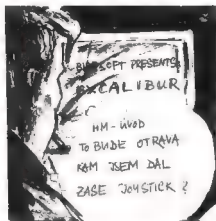 BUGSOFT PRESENTS
EXCALIBUR
HM - ÚVOD
TO BUDE OTRAVA
KAM JSEM DAL
ZASE JOYSTICK ?